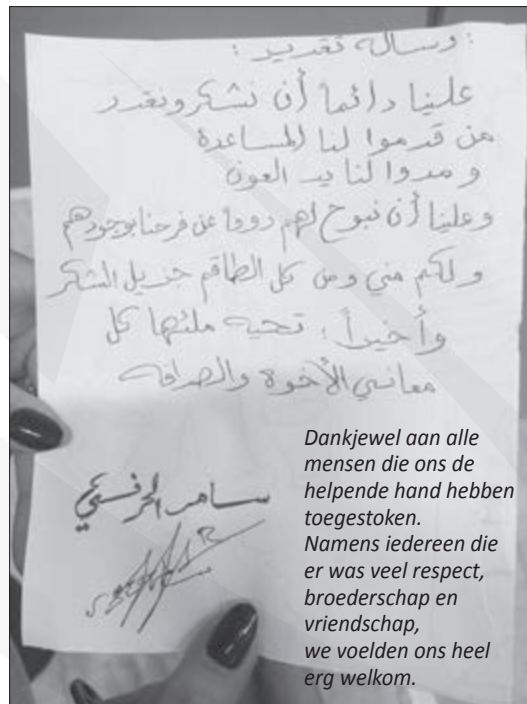 : رسالة تقدير :
علينا دائما أن نشكر ونقدر
من قدموا لنا المساعدة
و مدوا لنا يد العون
وعلينا أن نبوح لهم دوما عن فرحنا بوجودهم
ولكم مني ومن كل الطاقم جزيل الشكر
وأخيراً : تحية ملئها كل
معاني الأخوة والصداقه
سامر
Dankjewel aan alle
mensen die ons de
helpende hand hebben
toegestoken.
Namens iedereen die
er was veel respect,
broederschap en
vriendschap,
we voelden ons heel
erg welkom.